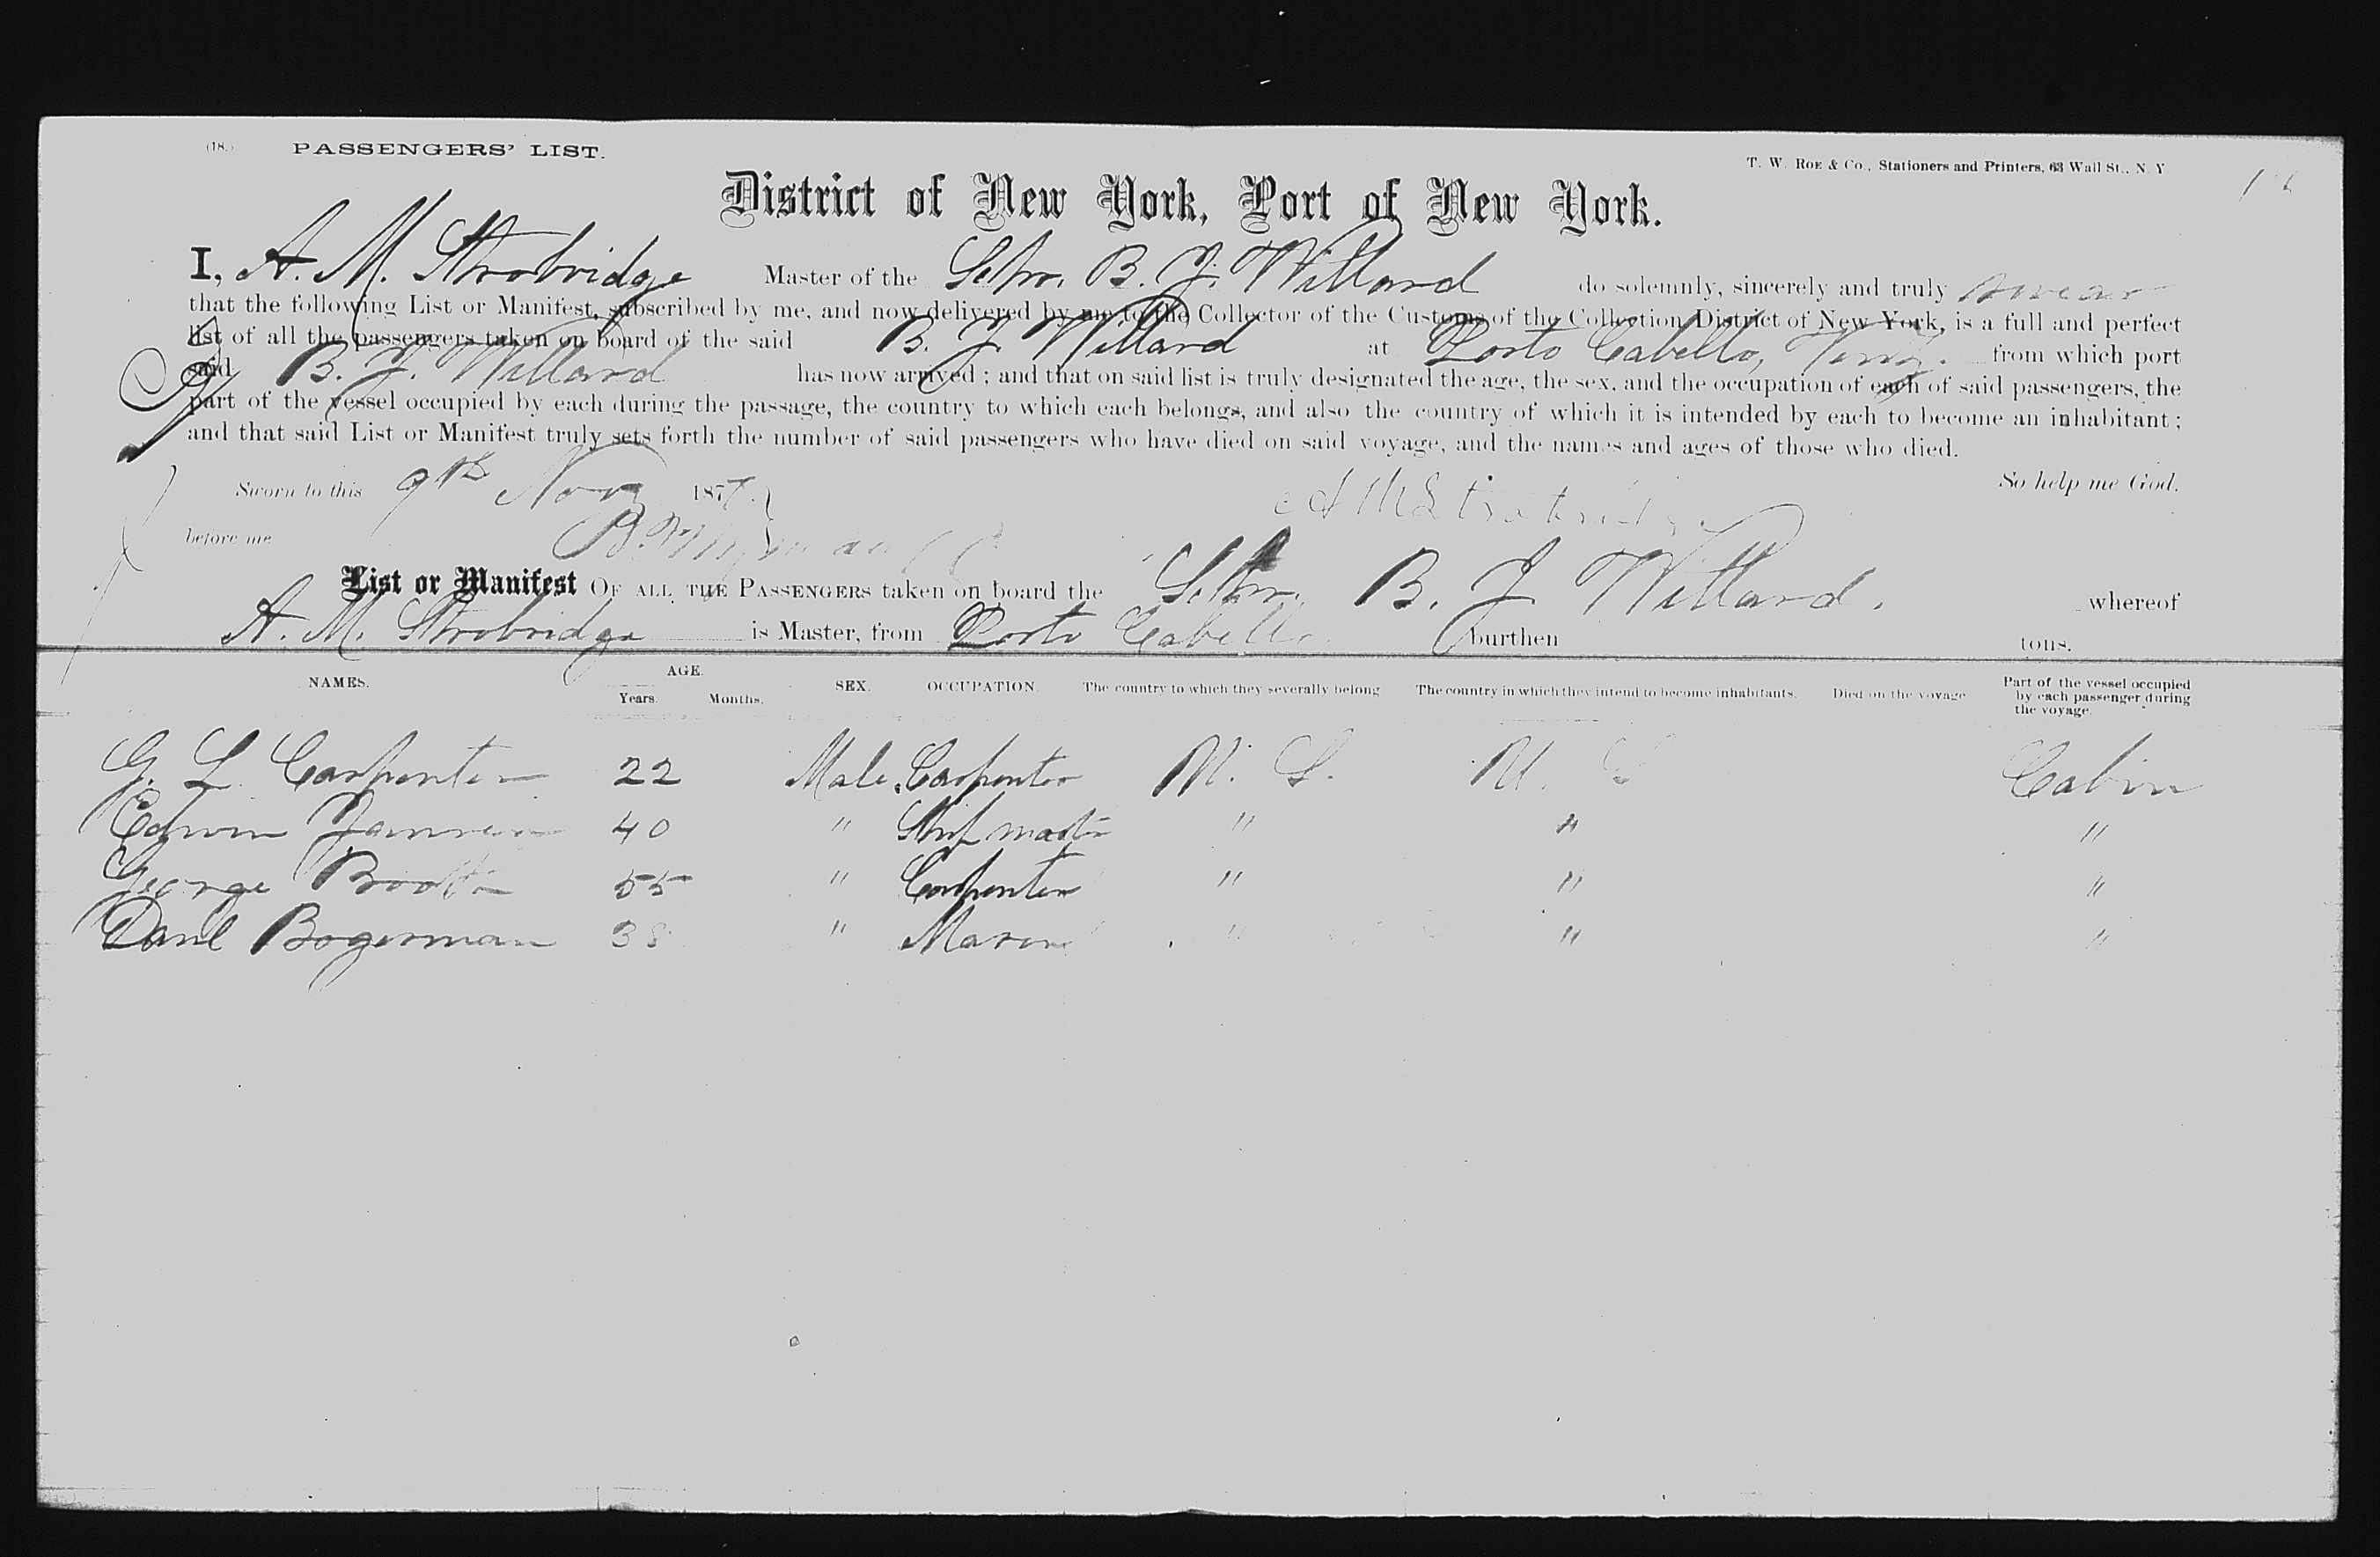 (18.) PASSENGERS' LIST.
T. W. ROE & CO., Stationers and Printers, 63 Wall St., N. Y
District of New York, Port of New York.
I, A. M. Strobridge Master of the Schr. B. J. Willard do solemnly, sincerely and truly swear
that the following List or Manifest, subscribed by me, and now delivered by me to the Collector of the Customs of the Collection District of New York, is a full and perfect
list of all the passengers taken on board of the said B. J. Willard at Porto Cabello, from which port
said B. J. Willard has now arrived ; and that on said list is truly designated the age, the sex, and the occupation of each of said passengers, the
part of the vessel occupied by each during the passage, the country to which each belongs, and also the country of which it is intended by each to become an inhabitant ;
and that said List or Manifest truly sets forth the number of said passengers who have died on said voyage, and the names and ages of those who died.
So help me God.
Sworn to this 9th Nov 1877.
A M Strobridge
before me
List or Manifest OF ALL THE PASSENGERS taken on board the Schr. B. J. Willard. whereof
A. M. Strobridge is Master, from Porto Cabello burthen tons.
NAMES. AGE. Years. Months. SEX. OCCUPATION. The country to which they severally belong The country in which they intend to become inhabitants. Died on the voyage Part of the vessel occupied by each passenger during the voyage.
G. L. Carpenter 22 Male Carpenter U. S. U. S Cabin
Edwin 40 " Ship master " " "
George Booth 55 " Carpenter " " "
Danl Bogerman 38 " Mason " " "